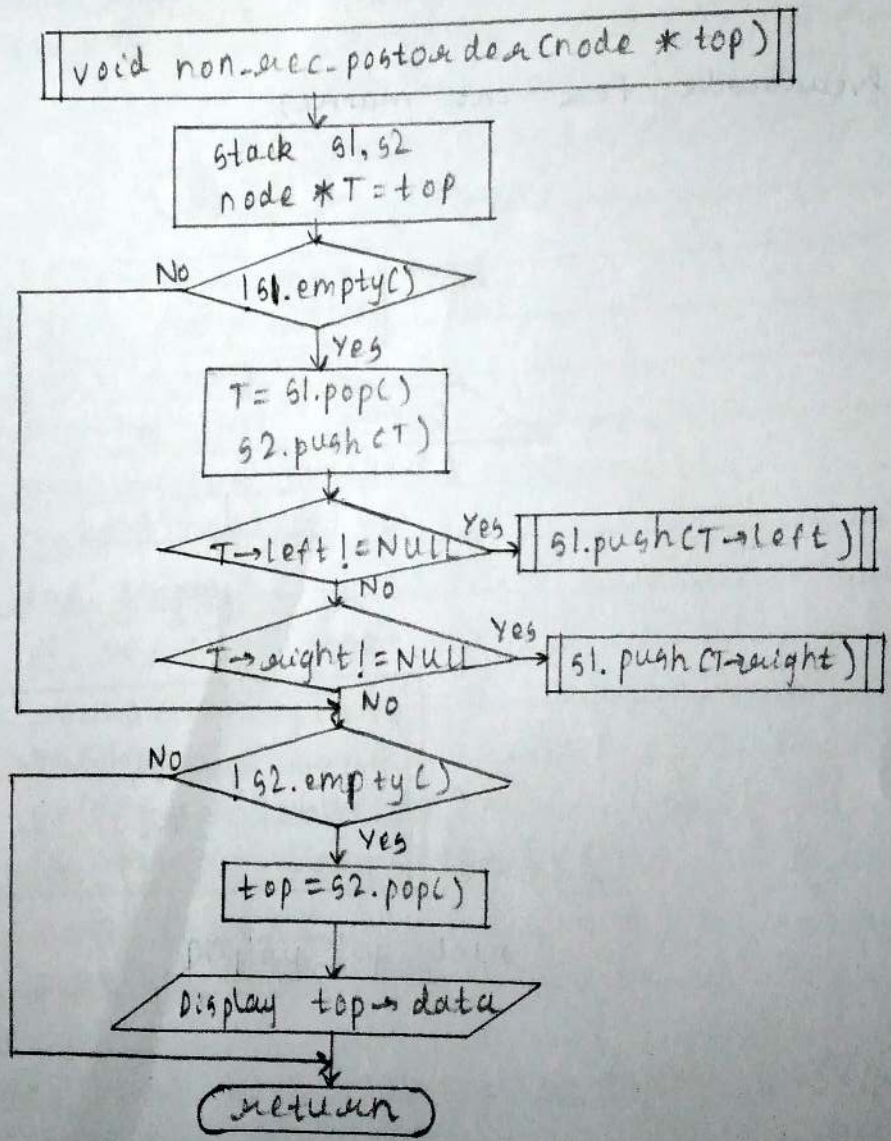 void non_rec_postorder(node * top)
stack s1, s2
node * T = top
No
!s1.empty()
Yes
T = s1.pop()
s2.push(T)
T→left != NULL
Yes
s1.push(T→left)
No
T→right != NULL
Yes
s1.push(T→right)
No
No
!s2.empty()
Yes
top = s2.pop()
Display top→data
return